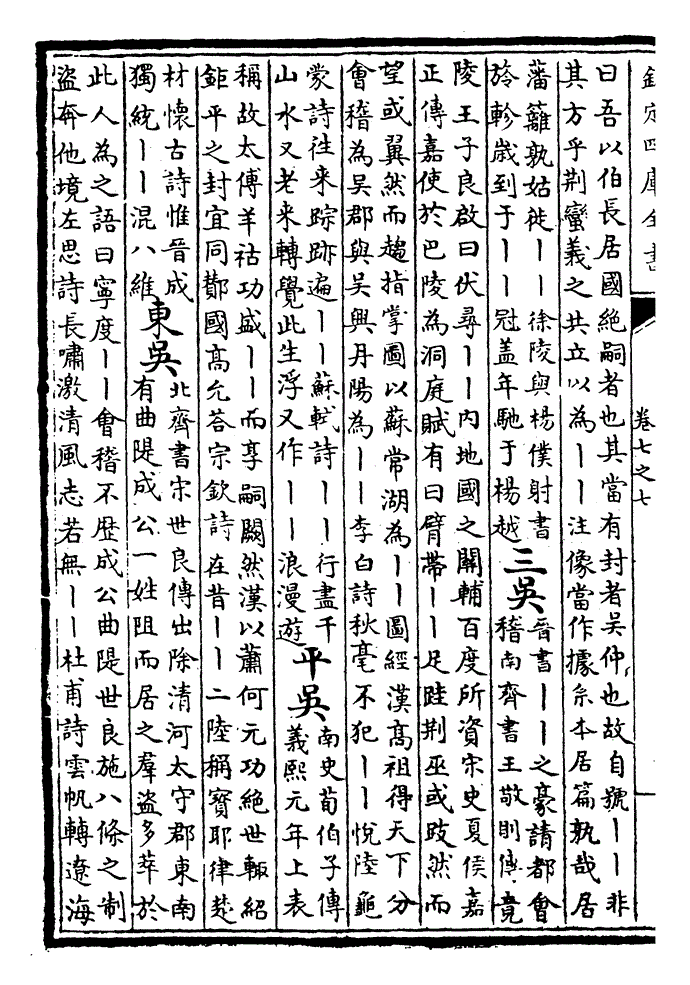 欽定四庫全書
卷七之七
曰吾以伯長居國絶嗣者也其當有封者吳仲也故自號丨丨非
其方乎荆蠻義之共立以為丨丨注像當作據糸本居篇孰哉居
藩籬孰姑徙丨丨徐陵與楊僕射書
於軫歳到于丨丨冠盖年馳于楊越
三吳
晉書丨丨之豪請都會
稽南齊書王敬則傳竟
陵王子良啟曰伏尋丨丨内地國之闗輔百度所資宋史夏侯嘉
正傳嘉使於巴陵為洞庭賦有曰臂帶丨丨足跬荆巫或跂然而
望或翼然而趨指掌圖以蘇常湖為丨丨圖經漢髙祖得天下分
會稽為吳郡與吳興丹陽為丨丨李白詩秋毫不犯丨丨悅陸龜
蒙詩往来踪跡遍丨丨蘇軾詩丨丨行盡千
山水又老来轉覺此生浮又作丨丨浪漫遊
平吳
南史荀伯子傳
義熙元年上表
稱故太傅羊祜功盛丨丨而享嗣闕然漢以蕭何元功絶世輒紹
鉅平之封宜同酇國髙允荅宗欽詩在昔丨丨二陸稱寳耶律楚
材懷古詩惟晉成
獨統丨丨混八維
東吳
北齊書宋世良傳出除清河太守郡東南
有曲隄成公一姓阻而居之羣盗多萃於
此人為之語曰寧度丨丨會稽不歴成公曲隄世良施八條之制
盗奔他境左思詩長嘯激清風志若無丨丨杜甫詩雲帆轉遼海